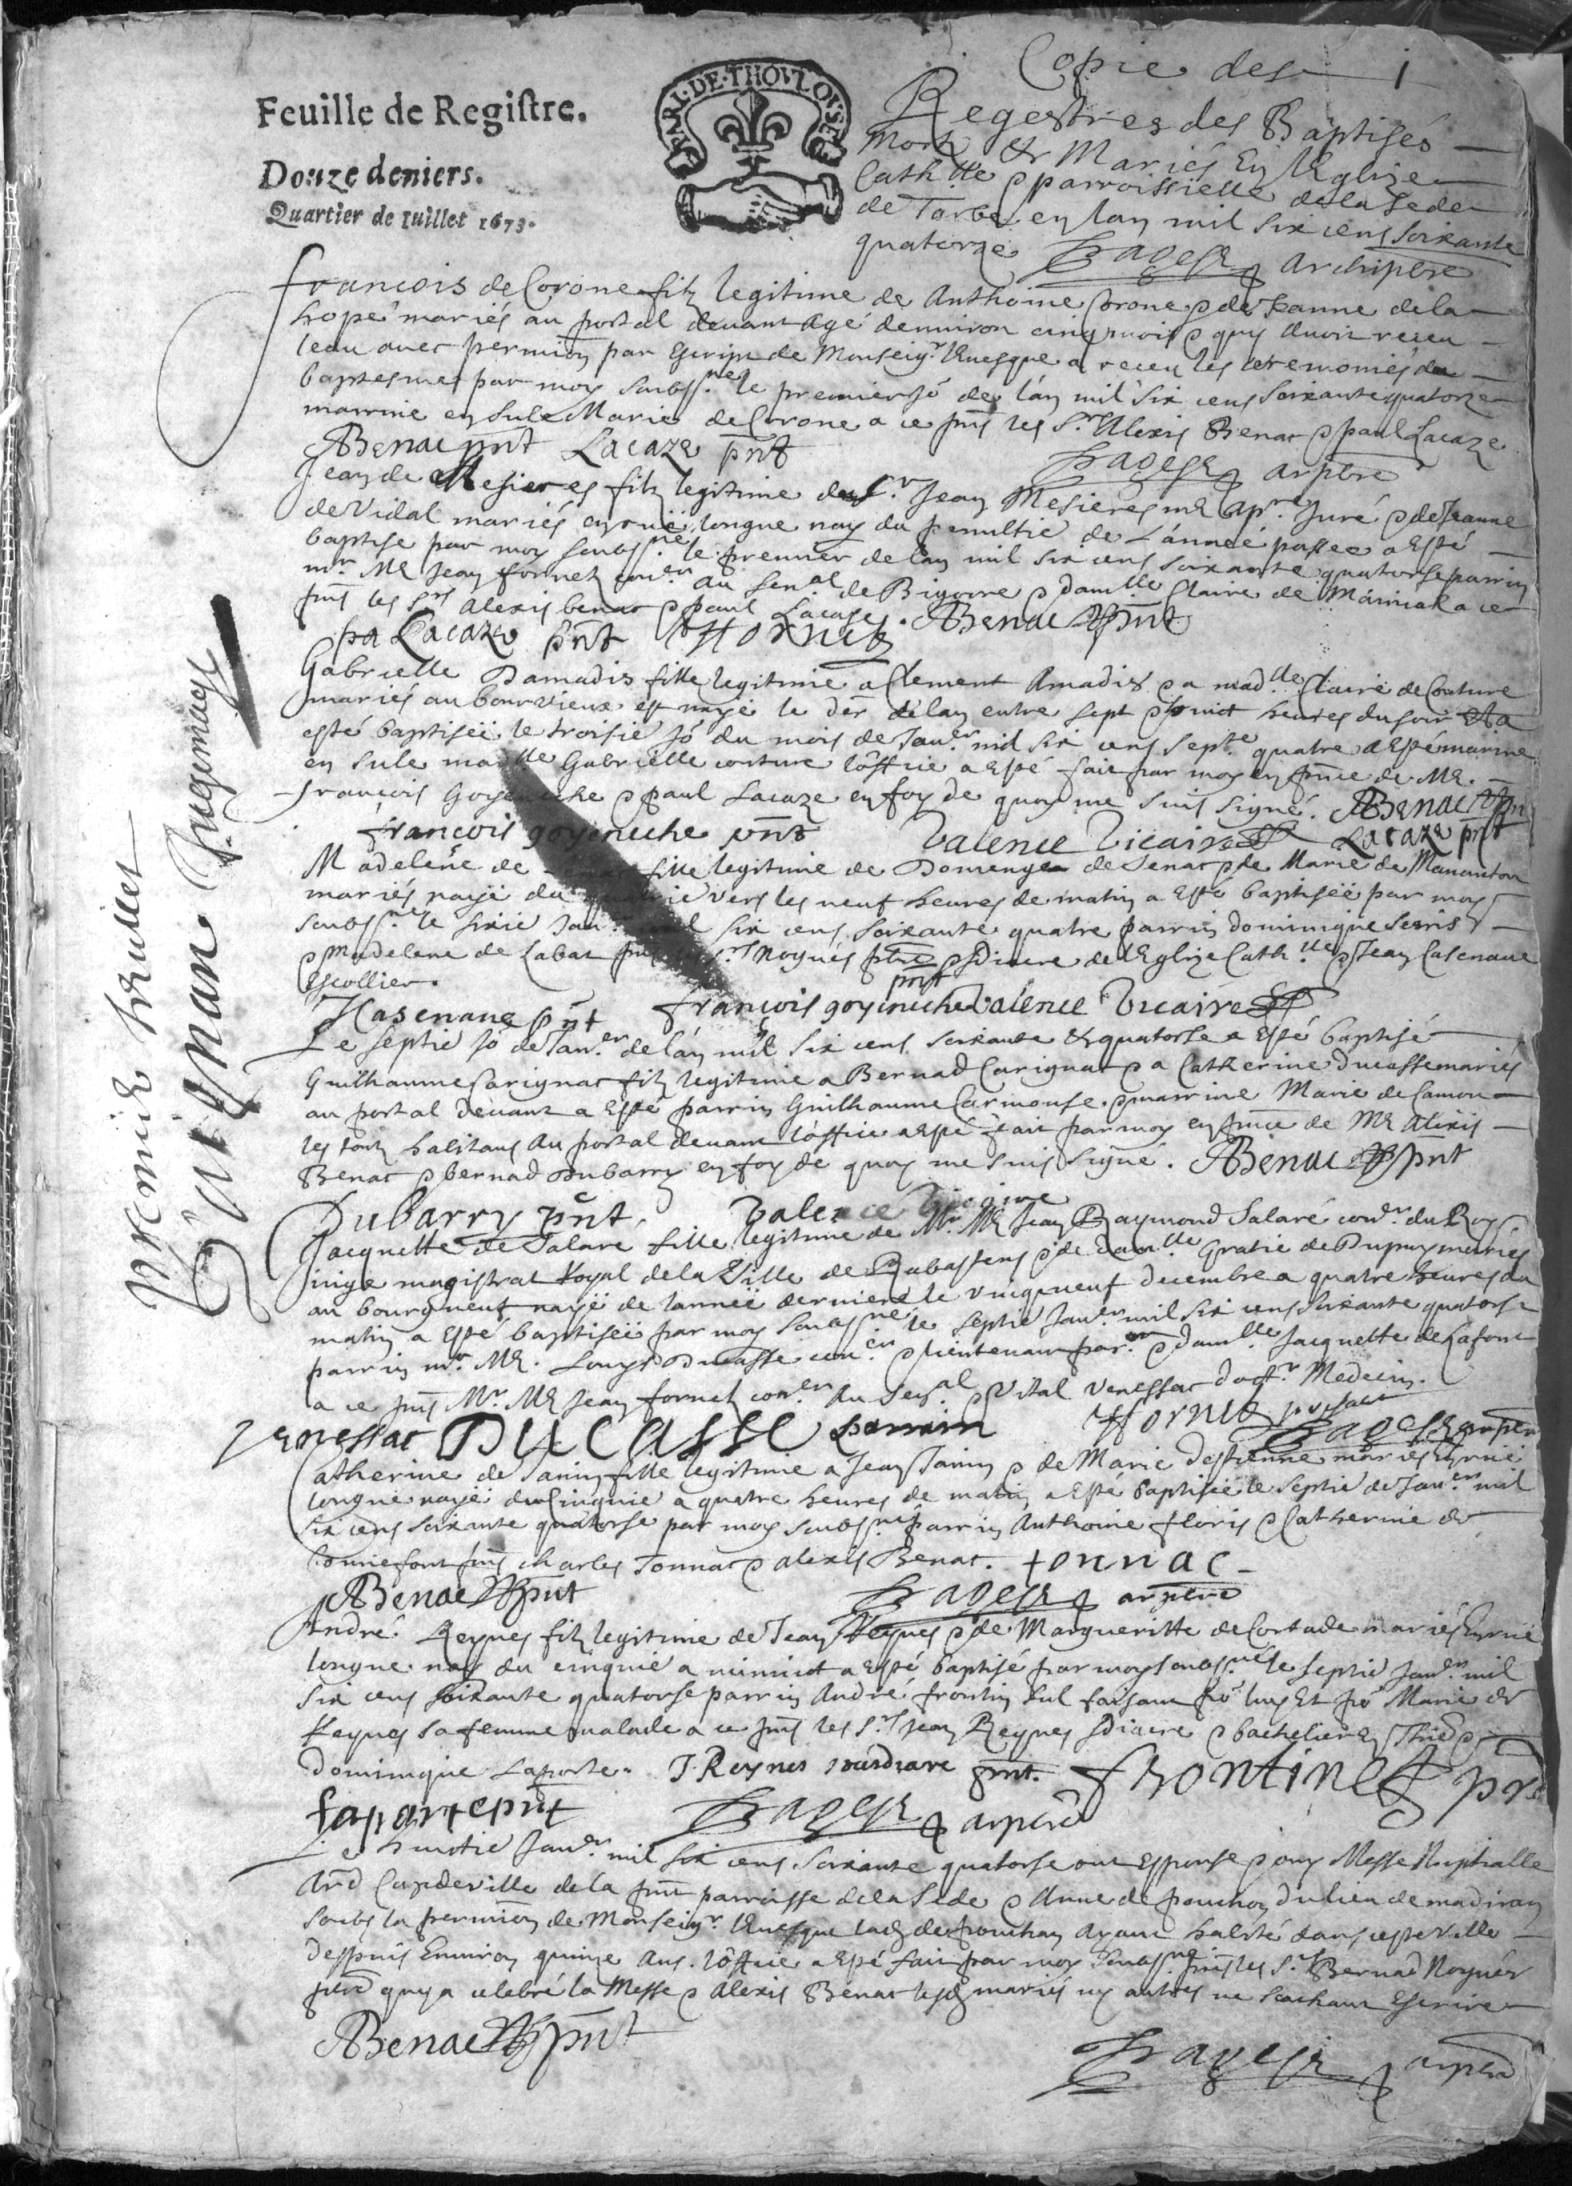 Feuille de Registre.
Douze deniers.
Quartier de Iuillet 1673.
PARL·DE·THOVLOVSE
Copie des 1
Regestres des Baptisés
Mortz & Mariés En lEglize
Cath.lle & parroissielle de la Sede
de Tarbe en lan mil six cens soixante
quatorze archiptre
premier feuillet
francois de Corone filz legitime de Anthoine Corone & de Jeanne de la
hope mariés au portal devant agé denuiron cinq mois & quy auoir receu
leau auec permion par Escript de Monseigr lEuesque a receu les ceremonies du
baptesme par moy soubsne le premier jo de lan mil six cens soixante quatorze
marrine en sule Marie de Corone a ce pnts les Srs Alexis Benac & paul Lacaze
Benac pnt Lacaze pnt arptre
Jean de Mesieres filz legitime de Sr Jean Mesieres me apre Juré & de Jeanne
de Vidal mariés en rue longue nay du penultie de Lannee passee a Esté
baptise par moy soubsne le premier de lan mil six cens soixante quatorse parrin
mr Me Jean fornetz coner au senal de Bigorre & damlle Claire de a ce
pnts les Srs Alexis benac & paul Lacaze. Benac pnt
pa Lacaze pnt fornetz
Gabrielle Damadis fille legitime a Clement Amadis & a madlle Claire de Couture
mariés au bourvieux est nayë le der de lan entre sept & huict heures du soir
esté baptiseë le troisie jo du mois de Janer mil six cens septe quatre a Esté marine
en sule madlle Gabrielle couture loffice a Esté fait par moy en pnce de Me
francois Goyeneche & paul Lacaze en foy de quoy me suis signé. Benac pnt
francois goyeneche pnt Valence Vicaire Lacaze pnt
Madelene de fille legitime de Domenge de Senac & de Marie de
mariés nayë du vers les neuf heures de matin a Esté baptiseë par moy
soubsne le sixie Janer mil six cens soixante quatre parrin dominique
& Madelene de Labat Srs Noguès ptre & Diacre de lEglize Cathlle & Jean Casenave
Escollier. pnt
Hasenave pnt francois goyeneche Valence Vicaire
Le septie jo de Janer de lan mil six cens soixante & quatorse a Esté baptisé
Guilhaume Carignac filz legitime a Bernad Carignac & a Catherine Ducasse mariés
au portal devant a Esté parrin Guilhaume Carmouse & marrine Marie de Camon
les touts habitans du portal devant loffice a Esté fait par moy en pnce de Me Alexis
Benac & bernad Dubarry en foy de quoy me suis signé. Benac pnt
Dubarry pnt Valence Vicaire
Jacquette de Salaré fille legitime de Mr Me Jean Raymond Salaré coner du Roy
juige magistrat Royal de la Ville de Rabastens & de damlle Gratie de Dupuy mariés
au bourgneuf nayë de lanneë derniere le vingneuf decembre a quatre heures du
matin a Esté baptiseë par moy soubsne le septie Janer mil six cens soixante quatorse
parrin mr Me. Louys Ducasse coner & lieutenant par & damlle Jacquette de Lafont
a ce pnts Mr Me Jean fornetz coner du Senal & Vital Venessac doctr Medecin.
Venessac DUCASSE parrin fornetz present arptre
Catherine de Janin fille legitime a Jean Janin & de Marie destienne mariés En rue
longue nayë du cinquie a quatre heures de matin a Esté baptiseë le septie de Janer mil
six cens soixante quatorse par moy soubsné parrin Anthoine floris & Catherine de
pnts charles Tonnac & alexis Benac. tonnac
Benac pnt arptre
André Reynes filz legitime de Jean Reynes & de Margueritte de Cortade mariés En rue
longue nay du cinquie a minuict a Esté baptisé par moy soubsné le septie Janer mil
six cens soixante quatorse parrin André frontin sul faisant po luy Et po Marie de
Reynes sa femme malade a ce pnts les Srs Jean Reynes Diacre & bachelier En Thie &
dominique Laporte. J. Reynes pnt. frontine
Laporte pnt arptre
Le huictie Janer mil six cens soixante quatorse ont Espouse & ouy Messe Nuptialle
Ard Capdeville de la pnte parroisse de la Sede & Anne de pouchon du lieu de madiran
soubs la permion de Monseigr lEuesque lad de pouchan ayant habité dans ceste Ville
despuis Enuiron quinze Ans. loffice a Esté fait par moy soubsne pnts les Srs Bernad Noguès
ptre quy a celebré la Messe & Alexis Benac lesd mariés ny autres ne scachant Escrire
Benac pnt arptre